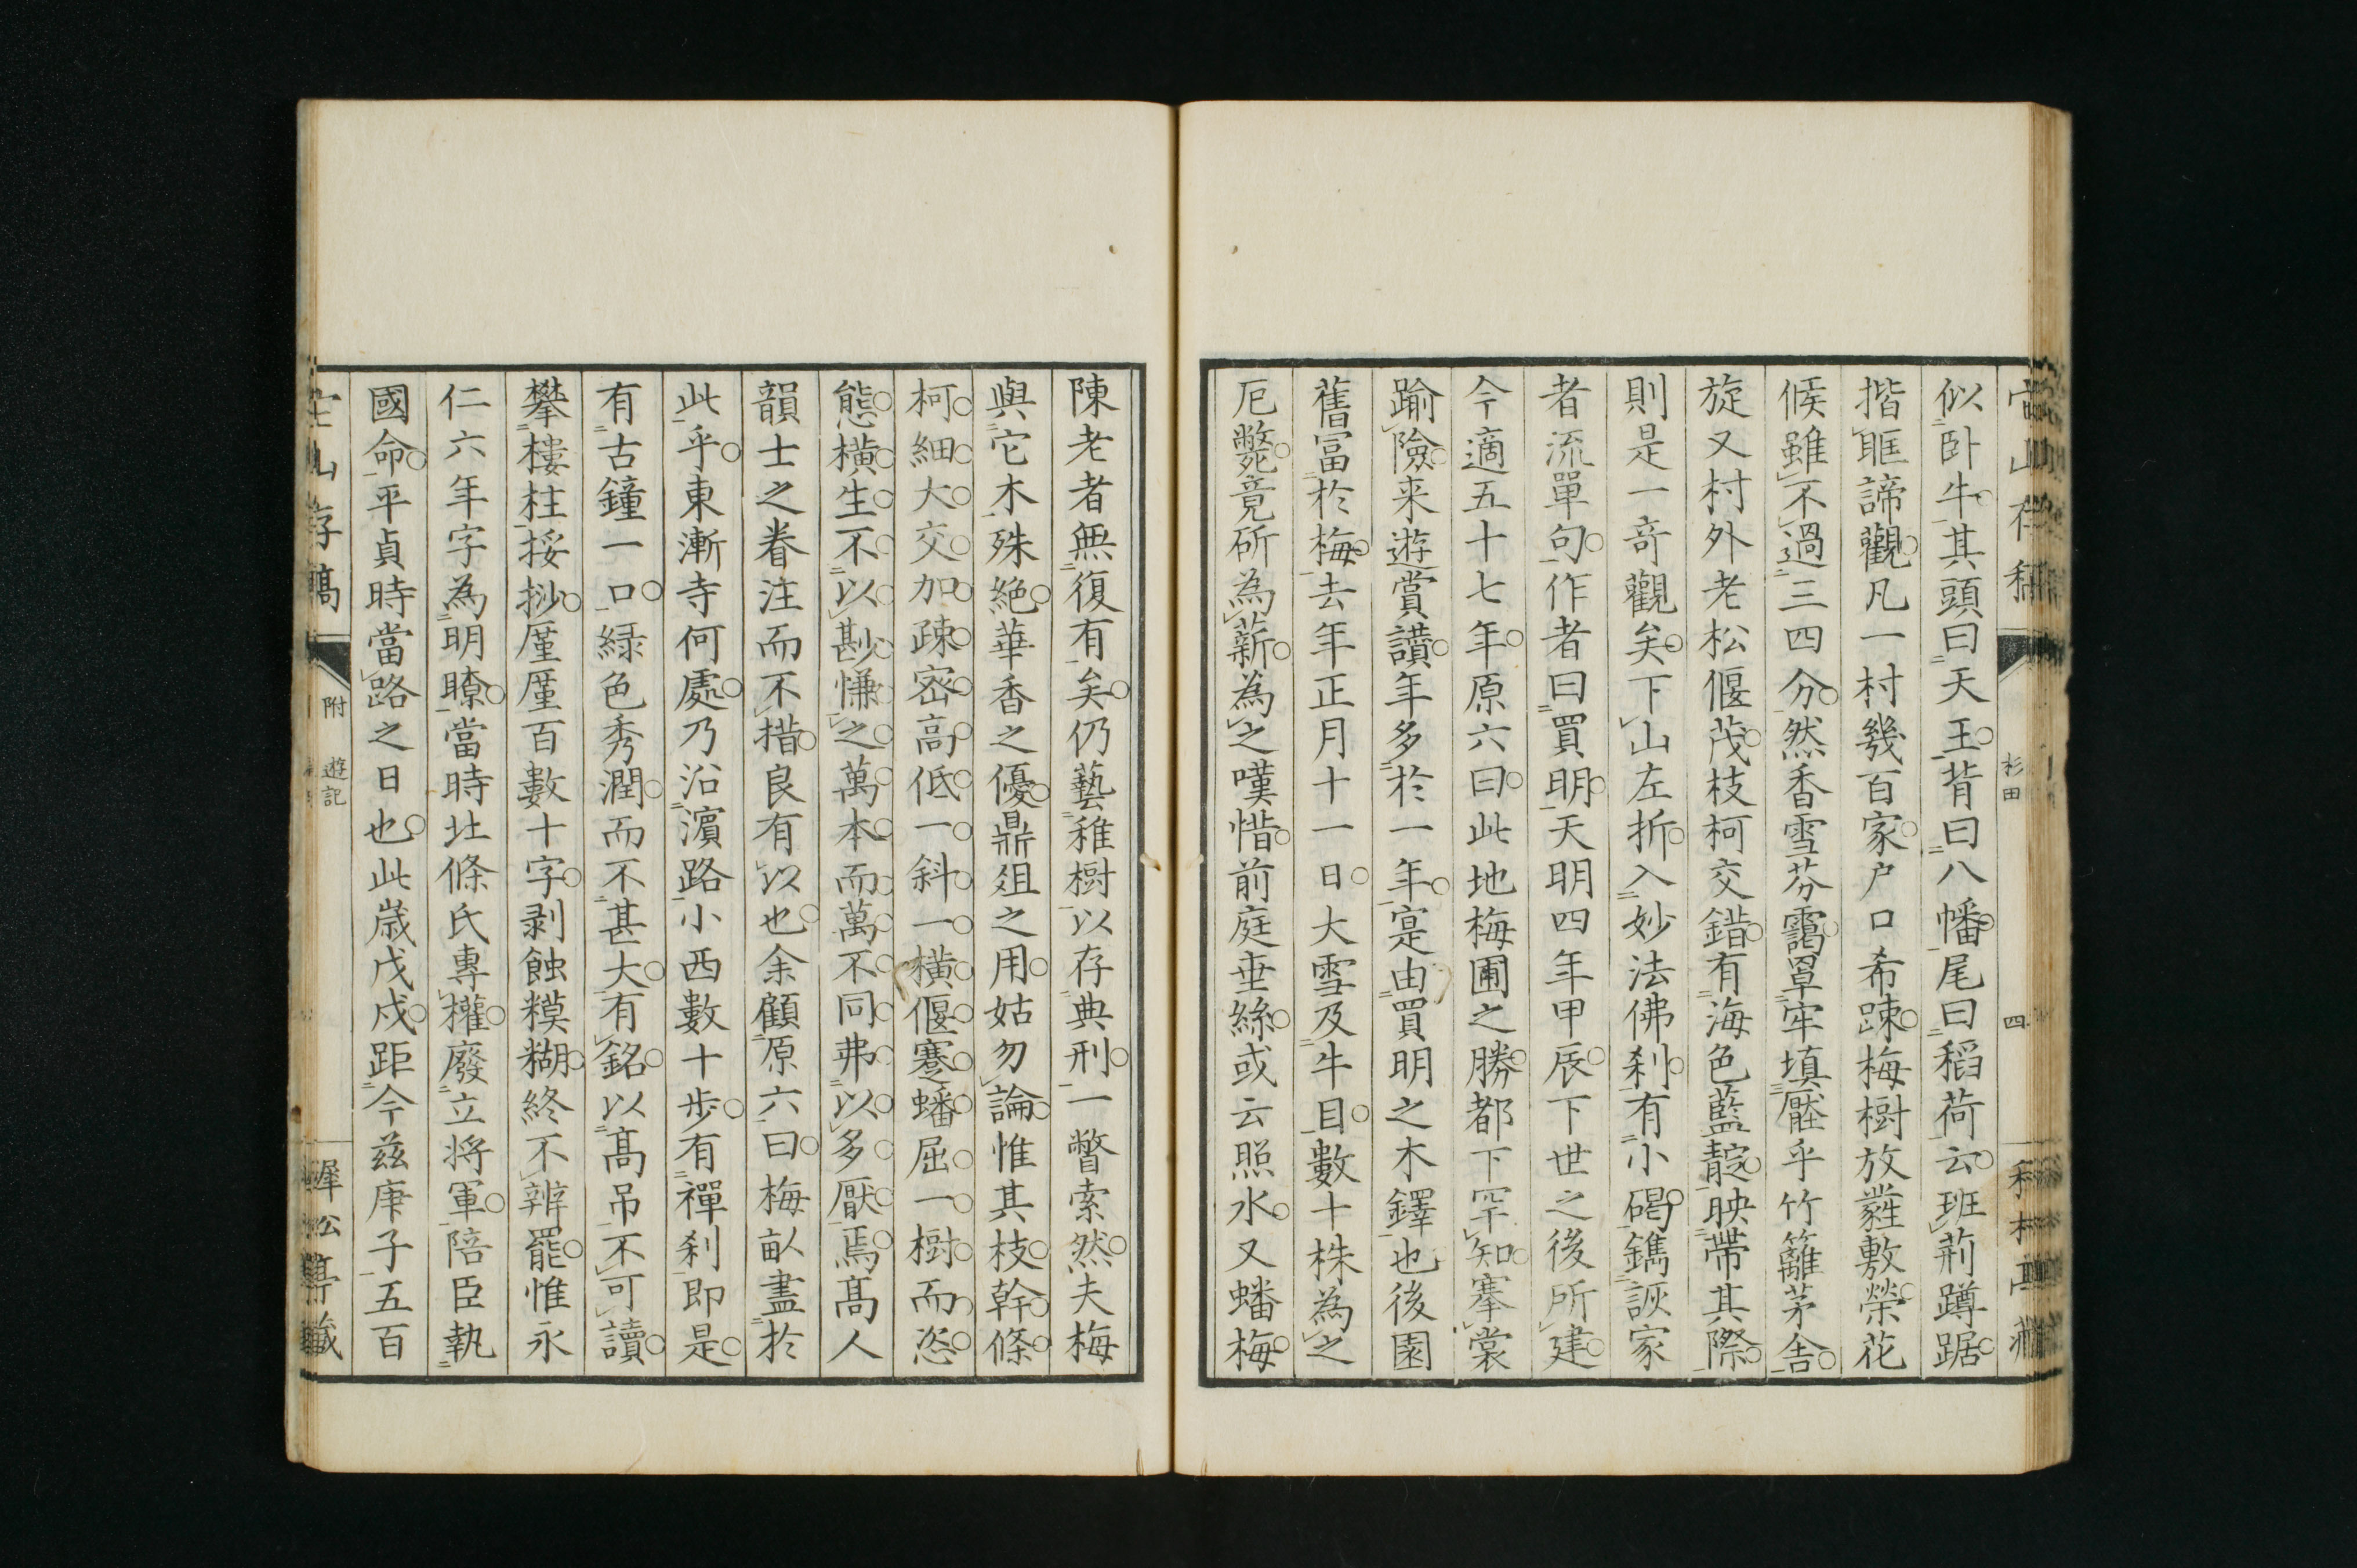 似卧牛其頭曰天王背曰八幡尾曰稻荷云班荊蹲踞
揩眶諦觀凡一村幾百家户口希踈梅樹放蕤敷榮花
候雖不過三四分然香雪芬靄罩牢填壓乎竹籬茅舎
旋又村外老松偃茂枝柯交錯有海色藍靛映帶其際
則是一奇觀矣下山左折入妙法佛刹有小碣鐫誹家
者流單句作者曰買明天明四年甲辰下世之後所建
今適五十七年原六曰此地梅圃之勝都下罕知搴裳
踰險来遊賞讃年多於一年寔由買明之木鐸也後園
舊冨於梅去年正月十一日大雪及牛目數十株為之
厄斃竟斫為薪為之嘆惜前庭垂絲或云照水又蟠梅
陳老者無復有矣仍藝稚樹以存典刑一瞥索然夫梅
與它木殊絕華香之優鼎俎之用姑勿論惟其枝幹條
柯細大交加踈密高低一斜一橫偃蹇蟠屈一樹而恣
態橫生不以尠慊之萬本而萬不同弗以多厭焉髙人
韻士之眷注而不措良有以也余顧原六曰梅畝盡於
此乎東漸寺何處乃沿濵路小西數十步有禪刹即是
有古鐘一口緑色秀潤而不甚大有銘以髙吊不可讀
攀樓柱挼抄廑廑百數十字剥蝕糢糊終不辨罷惟永
仁六年字為明瞭當時北條氏專權廢立将軍陪臣執
國命平貞時當路之日也此歲戊戌距今兹庚子五百
杉田
四
附
遊記